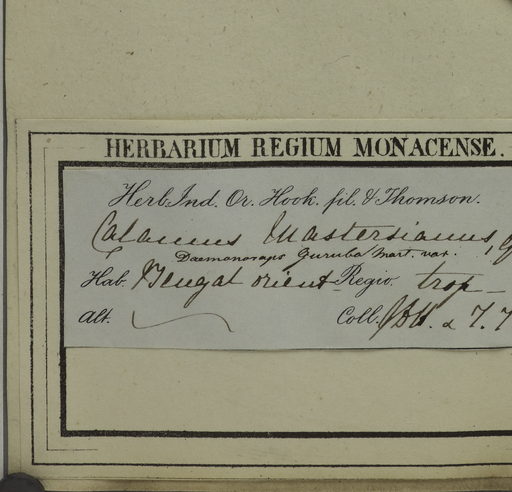 HERBARIUM REGIUM MONACENSE.
Herb. Ind. Or. Hook. fil. & Thomson.
Calamus Mastersianus, G
Daemonorops Guruba Mart. var.
Hab. Bengal orient Regio. trop –
Alt. Coll. JDH. & T. T